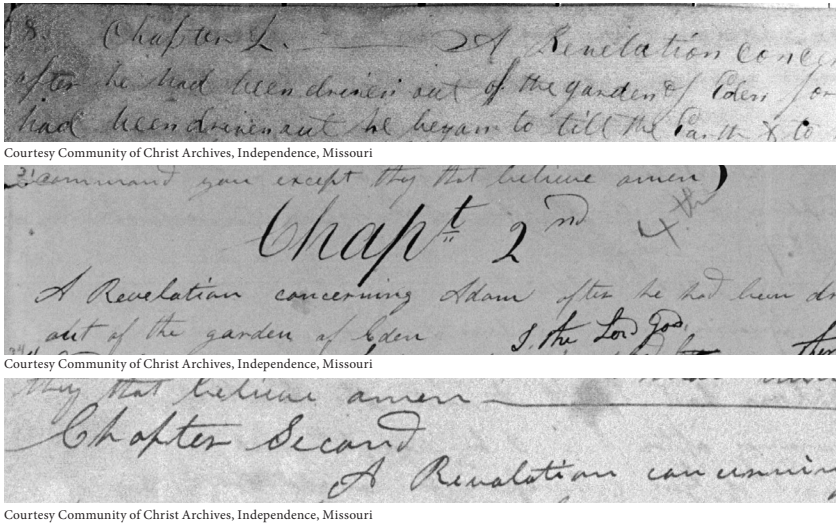 8. Chapter 2. A Revelation concer
after he had been driven out of the garden of Eden for
had been driven out he began to till the Earth & to
Courtesy Community of Christ Archives, Independence, Missouri
21 command you except they that believe amen)
Chapt 2nd 4th
A Revelation concerning Adam after he had been dr
out of the garden of Eden I, the Lord God,
Courtesy Community of Christ Archives, Independence, Missouri
they that believe amen
Chapter Second
A Revalation concunnin
Courtesy Community of Christ Archives, Independence, Missouri